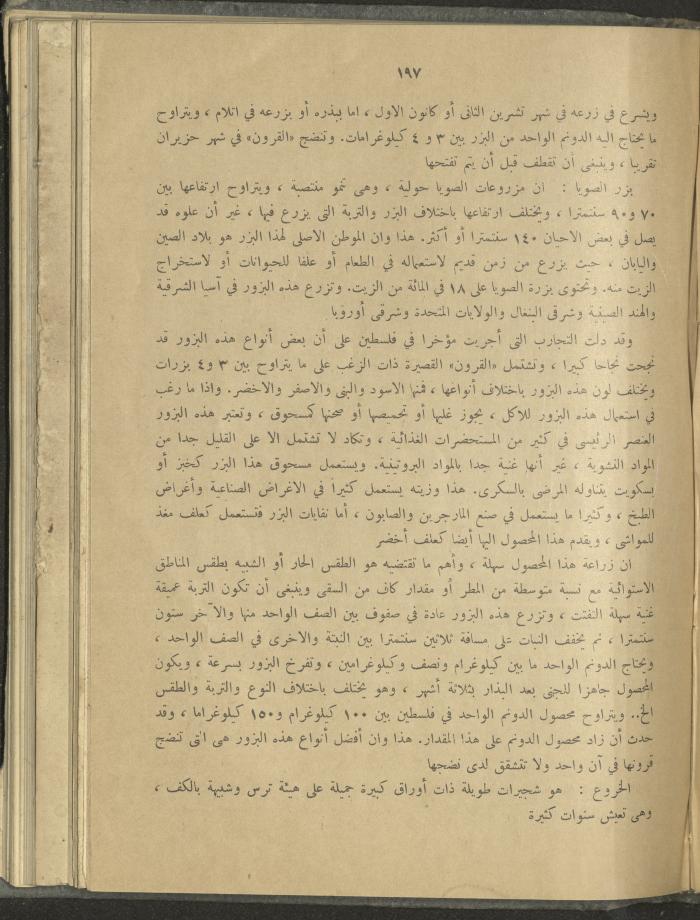 ١٩٧
ويشرع في زرعه في شهر تشرين الثانى أو كانون الاول ، اما ببذره أو بزرعه في اتلام ، ويتراوح
ما يحتاج اليه الدونم الواحد من البزر بين ٣ و ٤ كيلوغرامات. وتنضج «القرون» في شهر حزيران
تقريبا ، وينبغى أن تقطف قبل أن يتم تفتحها
بزر الصويا : ان مزروعات الصويا حولية ، وهى تنمو منتصبة ، ويتراوح ارتفاعها بين
٧٠ و٩٠ سنتمترا ، ويختلف ارتفاعها باختلاف البزر والتربة التى يزرع فيها ، غير أن علوه قد
يصل في بعض الاحيان ١٤٠ سنتمترا أو أكثر. هذا وان الموطن الاصلى لهذا البزر هو بلاد الصين
واليابان ، حيث يزرع من زمن قديم لاستعماله في الطعام أو علفا للحيوانات أو لاستخراج
الزيت منه. وتحتوى بزرة الصويا على ١٨ في المائة من الزيت. وتزرع هذه البزور في آسيا الشرقية
والهند الصينية وشرقى البنغال والولايات المتحدة وشرقى أوروبا
وقد دلت التجارب التى أجريت مؤخرا في فلسطين على أن بعض أنواع هذه البزور قد
نجحت نجاحا كبيرا ، وتشتمل «القرون» القصيرة ذات الزغب على ما يتراوح بين ٣ و٤ بزرات
ويختلف لون هذه البزور باختلاف أنواعها ، فمنها الاسود والبنى والاصفر والاخضر. واذا ما رغب
في استعمال هذه البزور للاكل ، يجوز غليها أو تحميصها أو صحنها كمسحوق ، وتعتبر هذه البزور
العنصر الرئيسى في كثير من المستحضرات الغذائية ، وتكاد لا تشتمل الا على القليل جدا من
المواد النشوية ، غير أنها غنية جدا بالمواد البروتينية. ويستعمل مسحوق هذا البزر كخبز أو
بسكويت يتناوله المرضى بالسكرى. هذا وزيته يستعمل كثيراً في الاغراض الصناعية وأغراض
الطبخ ، وكثيرا ما يستعمل في صنع المارجرين والصابون ، أما نفايات البزر فتستعمل كعلف مغذ
للمواشي ، ويقدم هذا المحصول اليها أيضا كعلف أخضر
ان زراعة هذا المحصول سهلة ، وأهم ما تقتضيه هو الطقس الحار أو الشبيه بطقس المناطق
الاستوائية مع نسبة متوسطة من المطر أو مقدار كاف من السقى وينبغى أن تكون التربة عميقة
غنية سهلة التفتت ، وتزرع هذه البزور عادة في صفوف بين الصف الواحد منها والآخر ستون
سنتمترا ، ثم يخفف النبات على مسافة ثلاثين سنتمترا بين النبتة والاخرى في الصف الواحد ،
ويحتاج الدونم الواحد ما بين كيلوغرام ونصف وكيلوغرامين ، وتفرخ البزور بسرعة ، ويكون
المحصول جاهزا للجنى بعد البذار بثلاثة أشهر ، وهو يختلف باختلاف النوع والتربة والطقس
الخ.. ويتراوح محصول الدونم الواحد في فلسطين بين ١٠٠ كيلوغرام و١٥٠ كيلوغراما ، وقد
حدث أن زاد محصول الدونم على هذا المقدار. هذا وان أفضل أنواع هذه البزور هى التى تنضج
قرونها في آن واحد ولا تتشقق لدى نضجها
الخروع : هو شجيرات طويلة ذات أوراق كبيرة جميلة على هيئة ترس وشبيهة بالكف ،
وهى تعيش سنوات كثيرة